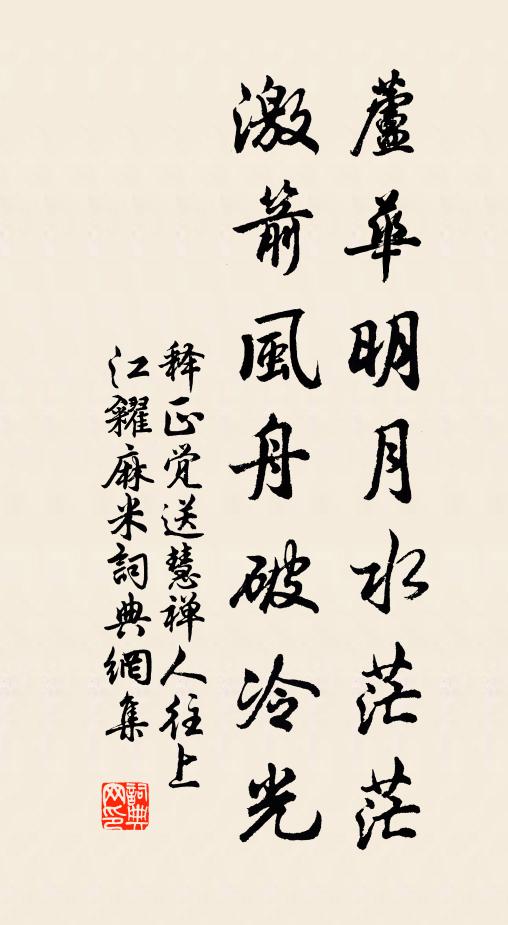 蘆華明月水茫茫
激箭風舟破冷光
释正觉送慧禅人往上
江糴麻米詞典網集
詞典网印